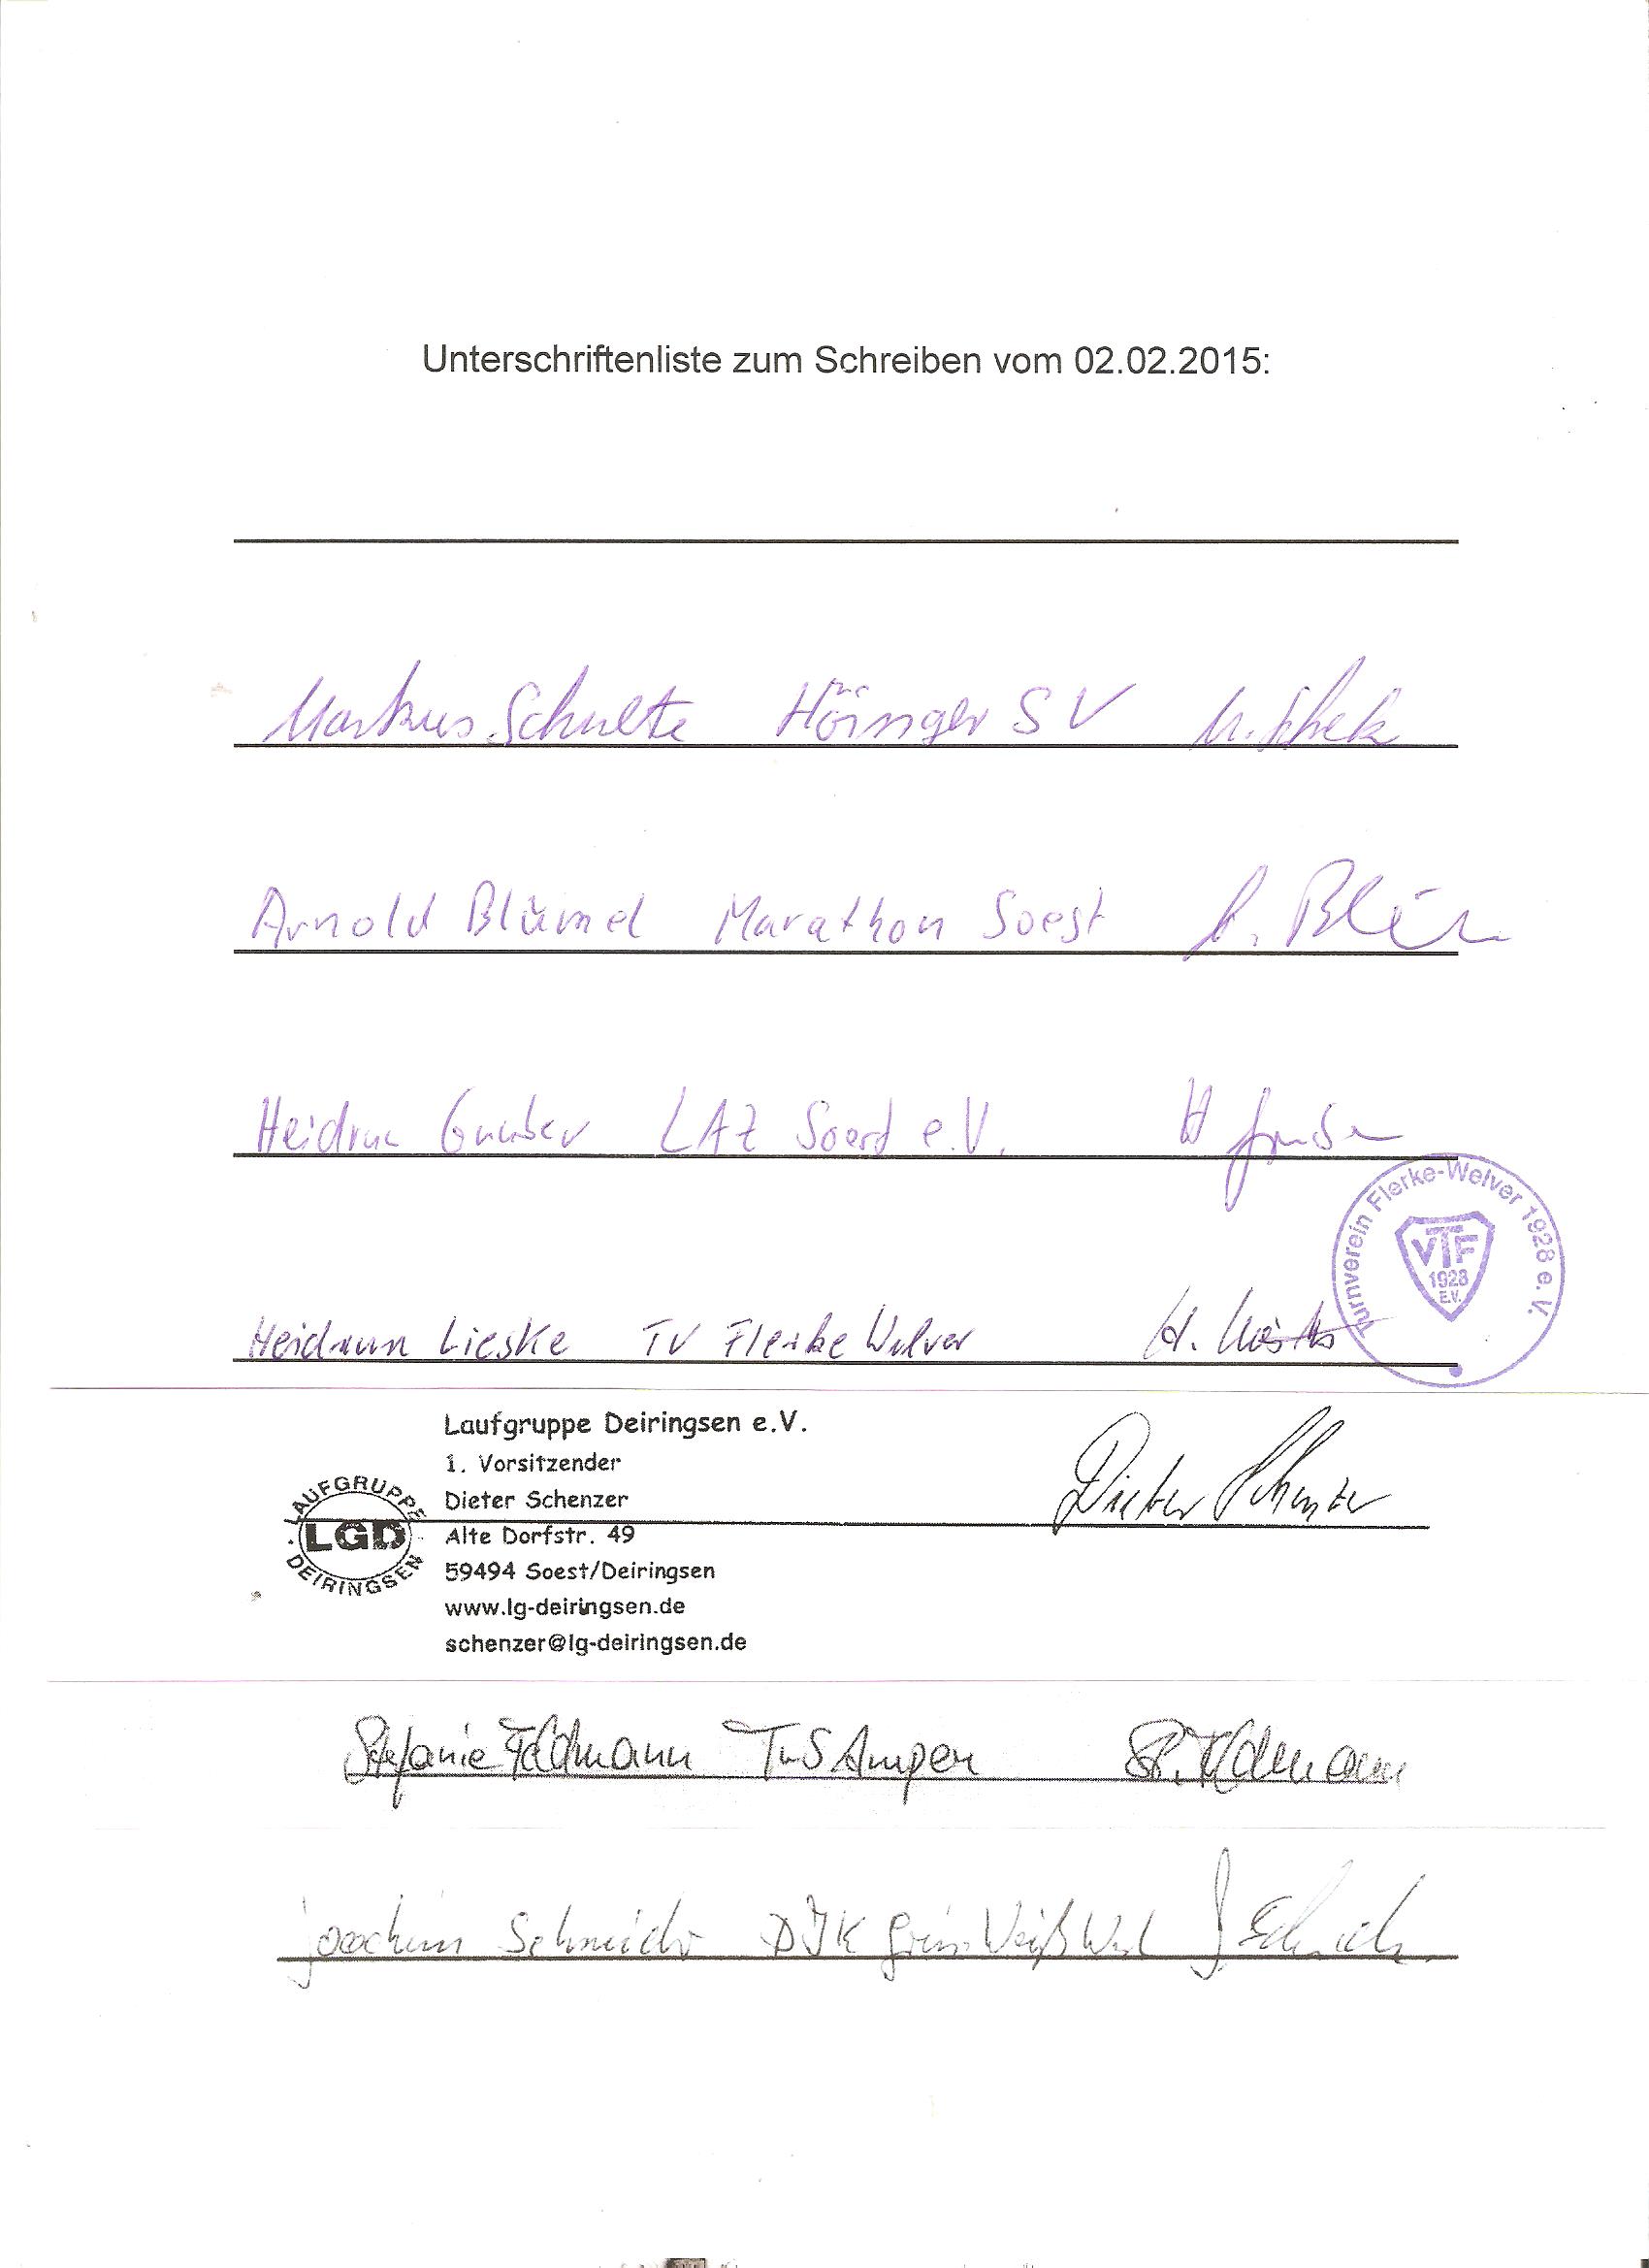 Unterschriftenliste zum Schreiben vom 02.02.2015:
Markus Schulte Höinger SV M. Schulte
Arnold Blümel Marathon Soest A. Blüm
Heidrun Gunther LAZ Soest e.V. H
Turnverein Flerke-Welver 1928 e. V.
VTF
1928
E.V.
Heidrun Lieske TV Flerke Welver H.
Laufgruppe Deiringsen e.V.
1. Vorsitzender
Dieter Schenzer Dieter Schenzer
LAUFGRUPPE
LGD
DEIRINGSEN
Alte Dorfstr. 49
59494 Soest/Deiringsen
www.lg-deiringsen.de
schenzer@lg-deiringsen.de
Stefanie Feldmann TuS Ampen St. Feldmann
Joachim Schmidt DJK Grün Weiß Werl J. Schmidt